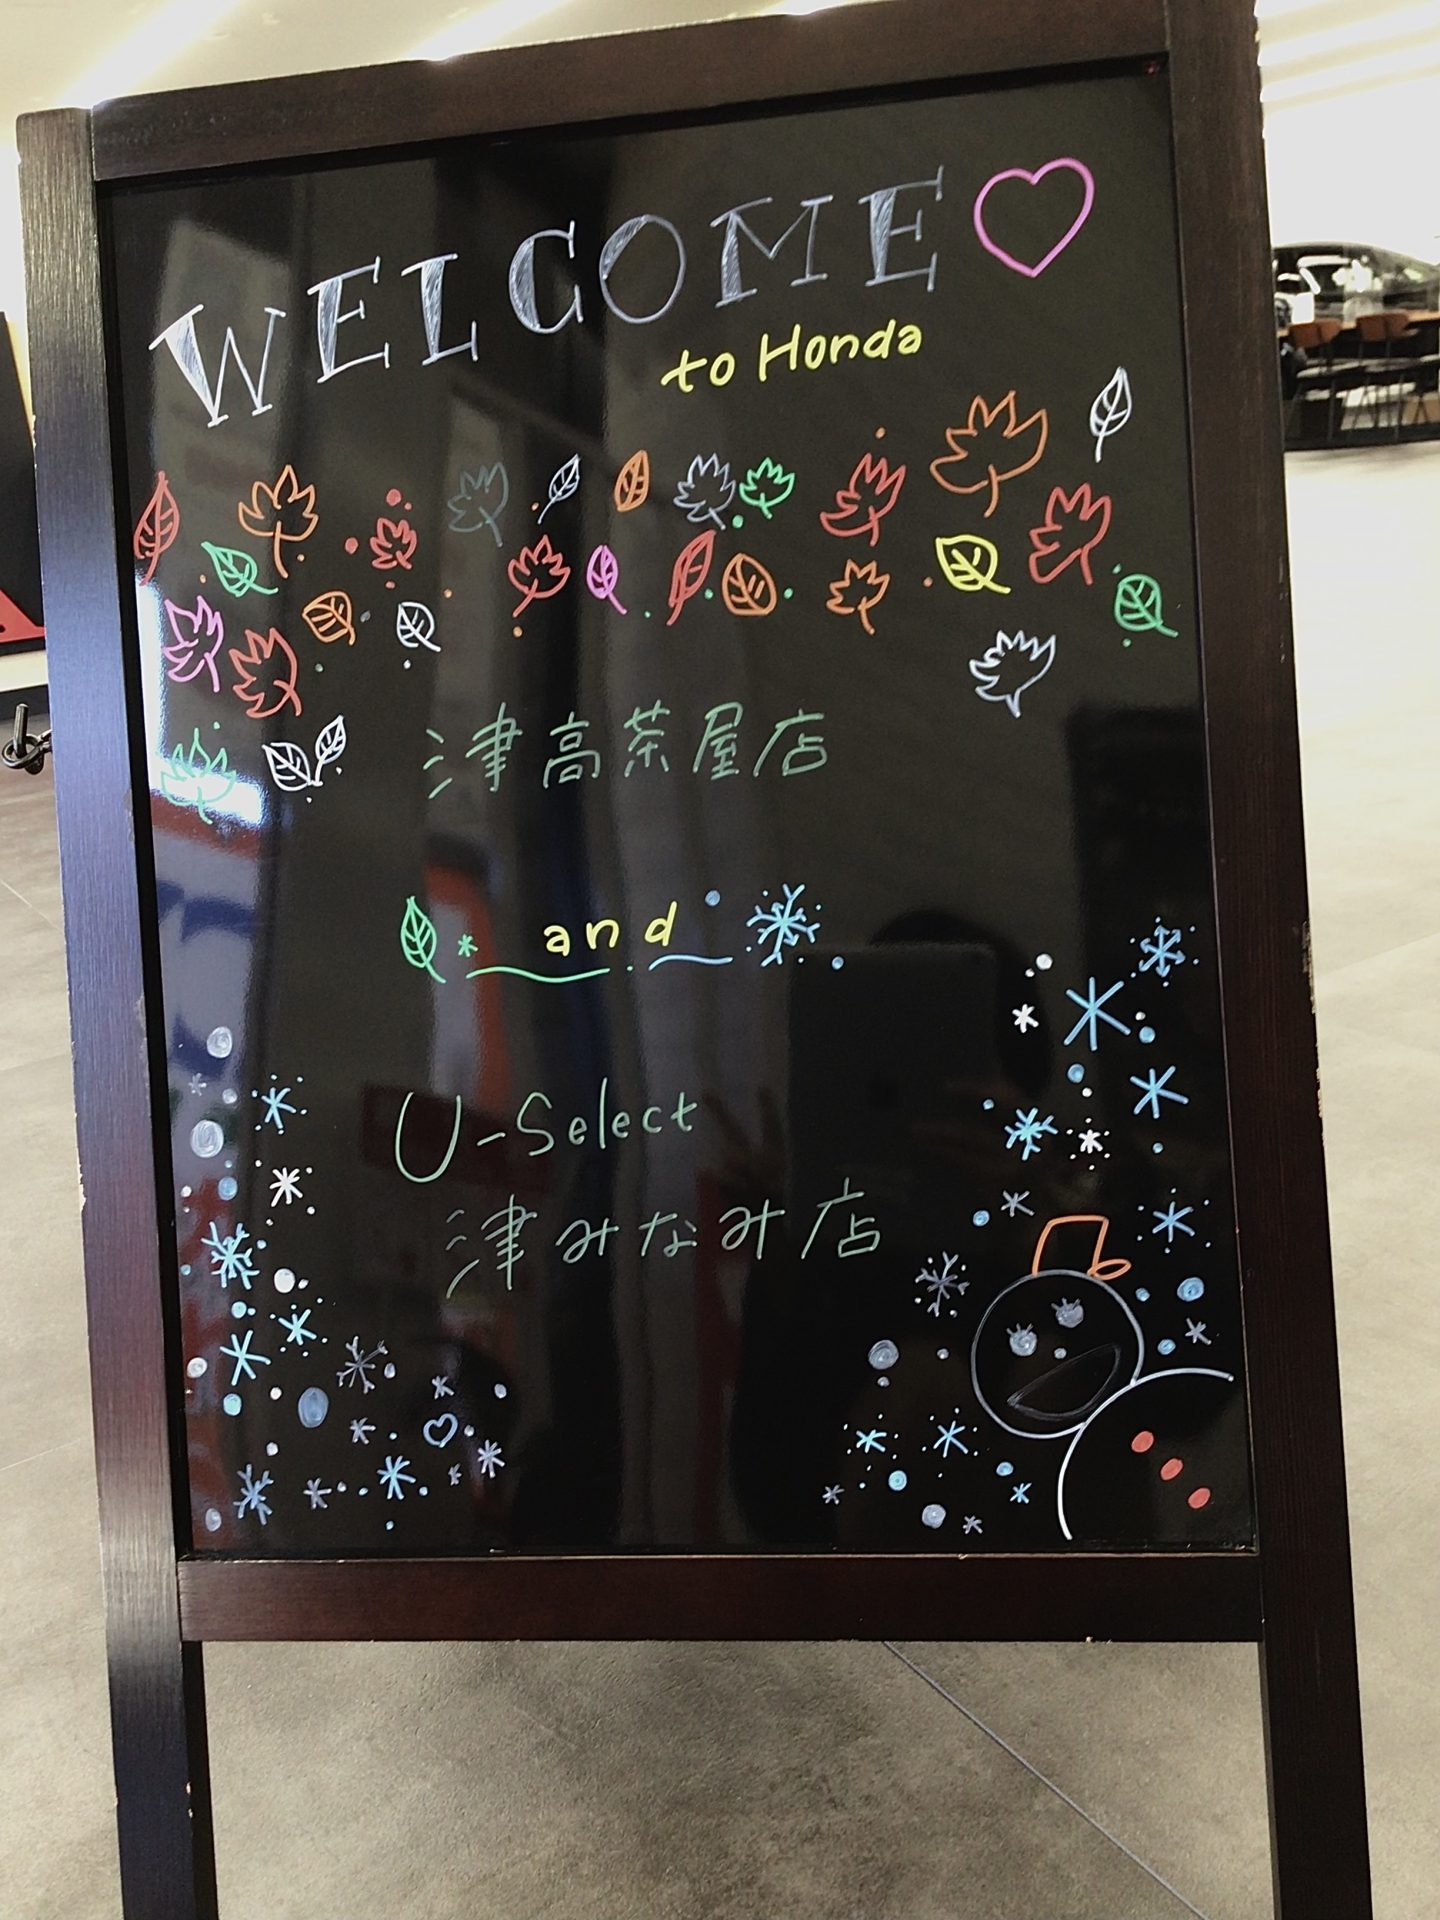 WELCOME♡
to Honda
津高茶屋店
and
U-Select
津みなみ店